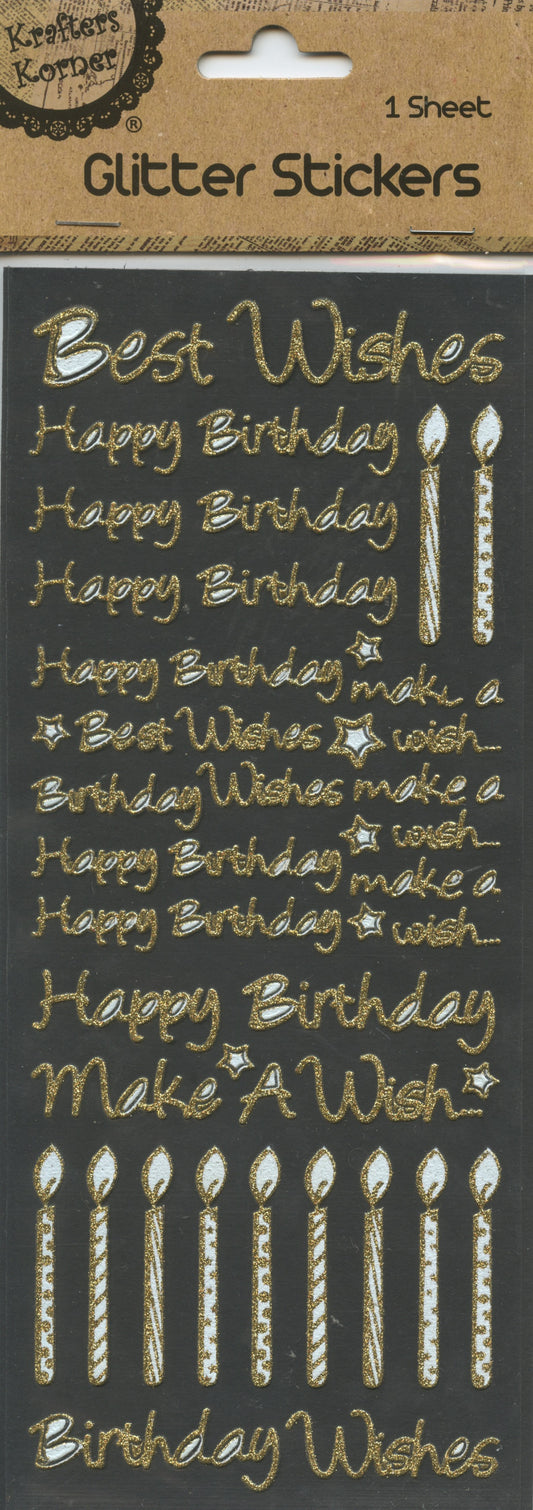 Krafters
Korner
®
1 Sheet
Glitter Stickers
Best Wishes
Happy Birthday
Happy Birthday
Happy Birthday
Happy Birthday make a
Best Wishes wish...
Birthday Wishes make a
wish...
Happy Birthday make a
Happy Birthday wish...
Happy Birthday
Make A Wish...
Birthday Wishes